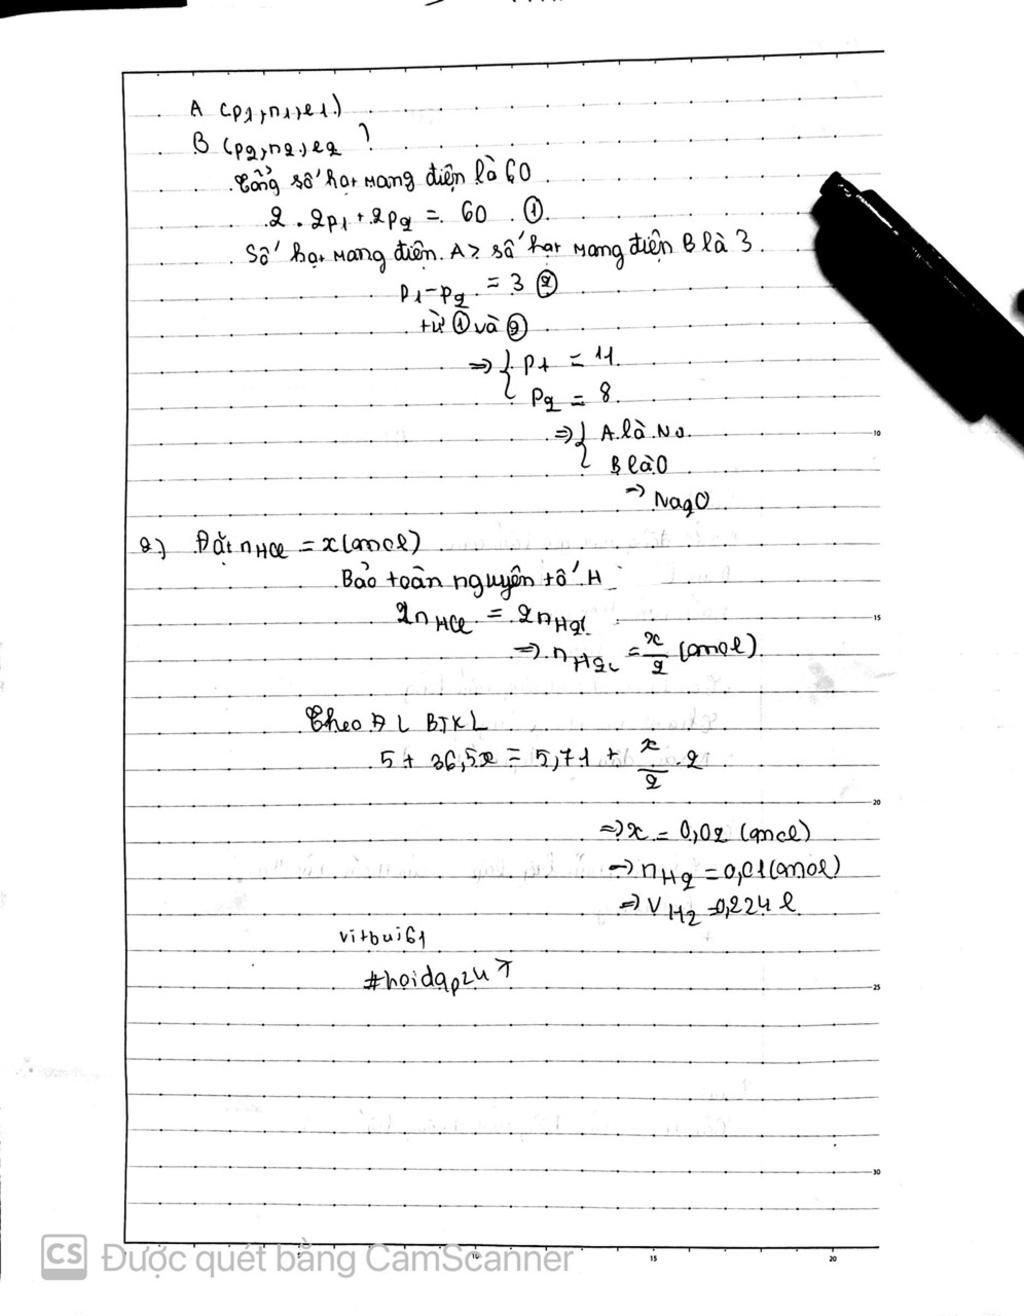 A (p1,n1,e1)
B (p2,n2,e2)
Tổng số hạt mang điện là 60
2.2p1+2p2 = 60 ①
Số hạt mang điện A > số hạt mang điện B là 3
p1-p2 = 3 ②
từ ① và ②
⇒ { p1 = 11
p2 = 8
⇒ { A là Na
B là O
→ Na2O
2) Đặt nHCl = x (mol)
Bảo toàn nguyên tố H
2nHCl = 2nH2
⇒ nH2 = x/2 (mol)
Theo ĐL BTKL
5 + 36,5x = 5,71 + x/2 . 2
⇒ x = 0,02 (mol)
→ nH2 = 0,01 (mol)
⇒ VH2 = 0,224 l
vitbui61
#hoidap247
10
15
20
25
30
10 15 20
CS Được quét bằng CamScanner